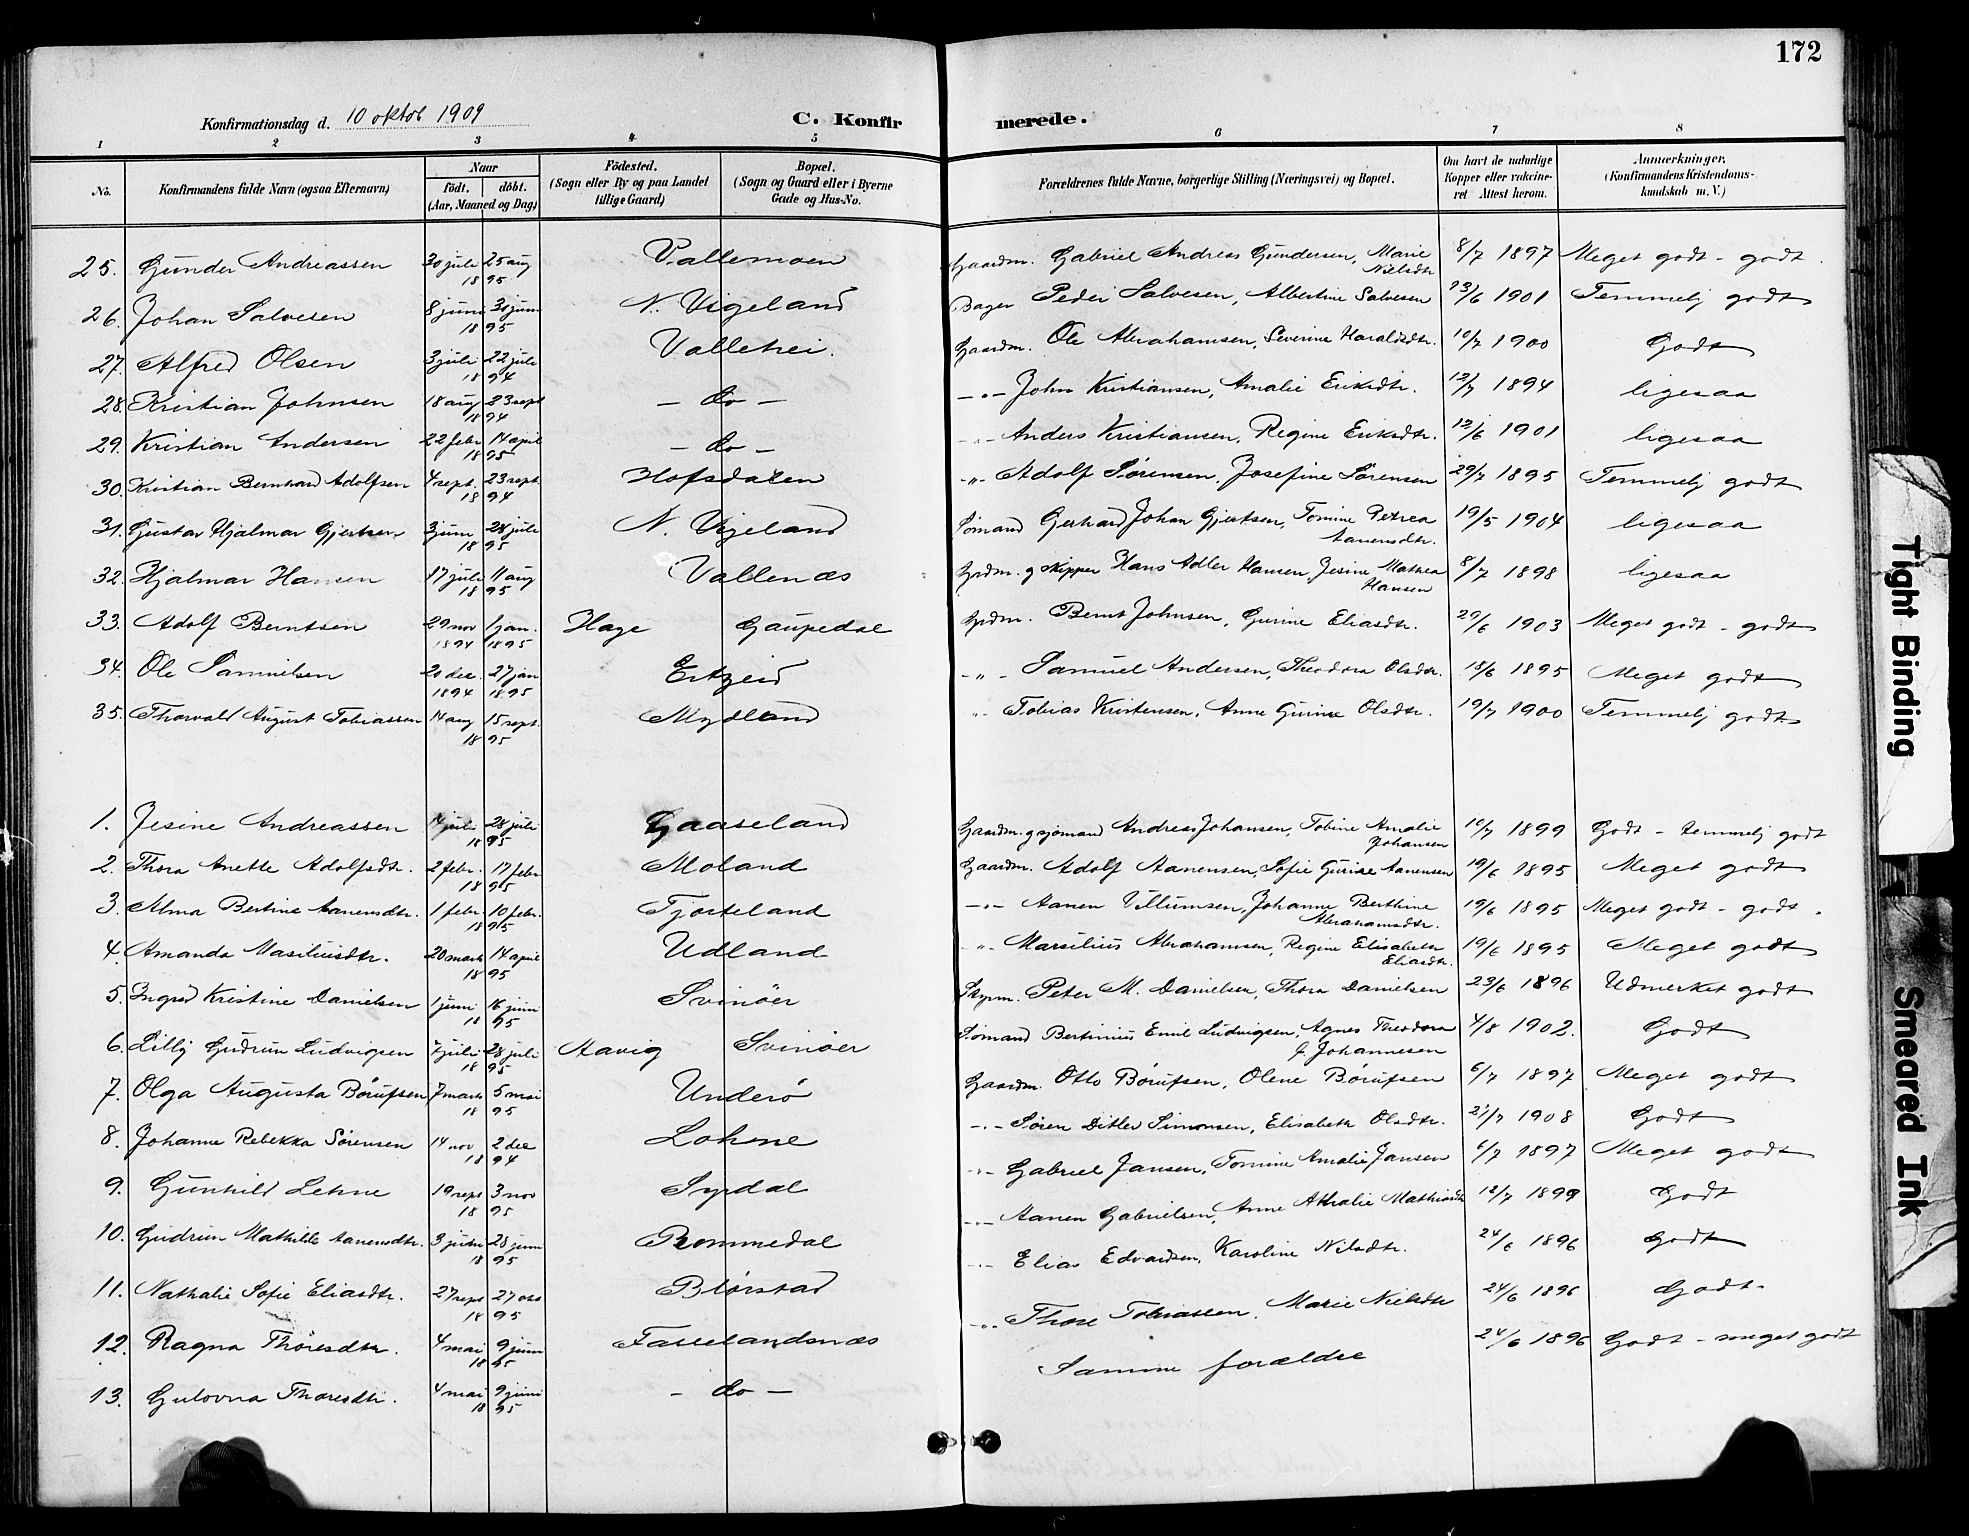 172
Konfirmationsdag d. 10 oktob 1909
C. Konfirmerede.
1 2 3 4 5 6 7 8
No. Konfirmandens fulde Navn (ogsaa Efternavn) Naar født. døbt. (Aar, Maaned og Dag) Födested. (Sogn eller By og paa Landet tillige Gaard) Bopæl. (Sogn og Gaard eller i Byerne Gade og Hus-No. Forældrenes fulde Navne, borgerlige Stilling (Næringsvei) og Bopæl. Om havt de naturlige Kopper eller vaccineret Attest herom. Anmærkninger. (Konfirmandens Kristendomskundskab m. V.)
25. Gunder Andreassen 30 juli 25 aug 1895 Vallemoen Gaardm. Gabriel Andreas Gundersen, Marie Nielsdtr 8/7 1897 Meget godt - godt.
26. Johan Salvesen 8 juni 30 juni 1895 N. Vigeland Bager Peder Salvesen, Albertine Salvesen 23/6 1901 Temmelj godt
27. Alfred Olsen 3 juli 22 juli 1894 Vallehei. Gaardm. Ole Abrahamsen, Severine Haraldsdtr. 10/7 1900 Godt
28. Kristian Johnsen 18 aug 23 sept 1894 - do - -"- John Kristiansen, Amalie Eriksdtr. 12/7 1894 ligesaa
29. Kristian Andersen 22 febr 14 april 1895 - do - -"- Anders Kristiansen, Regine Eriksdtr. 12/6 1901 ligesaa
30. Kristian Bernhard Adolfsen 4 sept. 23 sept. 1894 Hofsdalen -"- Adolf Sørensen, Josefine Sørensen 29/7 1895 Temmelj godt
31. Gustav Hjalmar Gjertsen 3 juni 28 juli 1895 N. Vigeland Sømand Gerhard Johan Gjertsen, Tomine Petrea Aanensdtr. 19/5 1904 ligesaa
32. Hjalmar Hansen 17 juli 11 aug 1895 Vallenæs Grdm. g skipper Hans Adler Hansen, Jesine Mathea Hansen 8/7 1898 ligesaa
33. Adolf Berntsen 29 nov 1894 1 jan. 1895 Hage Gaupedal Grdm. Bernt Johnsen, Gurine Eliasdtr. 29/6 1903 Meget godt - godt
34. Ole Samuelsen 20 dec. 1894 27 jan 1895 Eitzeid -"- Samuel Andersen, Theodora Olsdtr. 18/6 1895 Meget godt
35. Thorvald August Tobiassen 14 aug 15 sept. 1895 Mydland -"- Tobias Kristensen, Anne Gurine Olsdtr. 19/7 1900 Temmelj godt
1. Jesine Andreassen 14 juli 28 juli 1895 Gaaseland Gaardm. g sjømand Andreas Johansen, Tobine Amalie Johansen 10/7 1899 Godt - temmelj godt
2. Thora Anette Adolfsdtr. 2 febr. 17 febr. 1895 Moland Gaardm. Adolf Aanensen, Sofie Gurine Aanensen 19/6 1895 Meget godt
3. Alma Bertine Aanensdtr. 1 febr. 10 febr. 1895 Tjorteland -"- Aanen Villumsen, Johanne Berthine Abrahamsdtr. 19/6 1895 Meget godt - godt.
4. Amanda Masiliusdtr. 20 marts 14 april 1895 Udland -"- Marsilius Abrahamsen, Regine Elisabeth Eliasdtr. 19/6 1895 Meget godt
5. Ingrid Kristine Danielsen 1 juni 16 juni 1895 Svinöer Peter M. Danielsen, Thora Danielsen 23/6 1896 Udmerket godt
6. Lilly Gudrun Ludvigsen 7 juli 28 juli 1895 Aavig Svinöer Sømand Bertinius Emil Ludvigsen, Agnes Theodora f. Johannesen 4/8 1902. Godt
7. Olga Augusta Börufsen 7 marts 5 mai 1895 Underö Gaardm. Otto Börufsen, Olene Börufsen 6/7 1897 Meget godt
8. Johanne Rebekka Sørensen 14 nov 2 dec 1894 Lohne -"- Søren Ditlev Simonsen, Elisabeth Olsdtr. 21/7 1908 Godt
9. Gunhild Lehne 19 sept 3 nov 1895 Syrdal -"- Gabriel Jansen, Tomine Amalie Jansen 6/7 1897 Meget godt
10. Gudrun Mathilde Aanensdtr. 28 juni 1895 Rommedal -"- Aanen Gabrielsen, Anne Athalie Mathiasdtr 12/7 1899 Godt
11. Nathalie Sofie Eliasdtr. 27 sept 27 1895 Blörstad -"- Elias Edvardsen, Karoline Nilsdtr. 24/6 1896 Godt
12. Ragna Thöresdtr. 4 mai 9 juni 1895 Faselandsnæs -"- Those Tobiassen, Marie Nielsdtr 24/6 1896 Godt
13. Gulovna Thoresdtr. 4 mai 9 juni 1895 - do - Samme forældre 24/6 1896 Godt - meget godt
Tight Binding
Smeared Ink